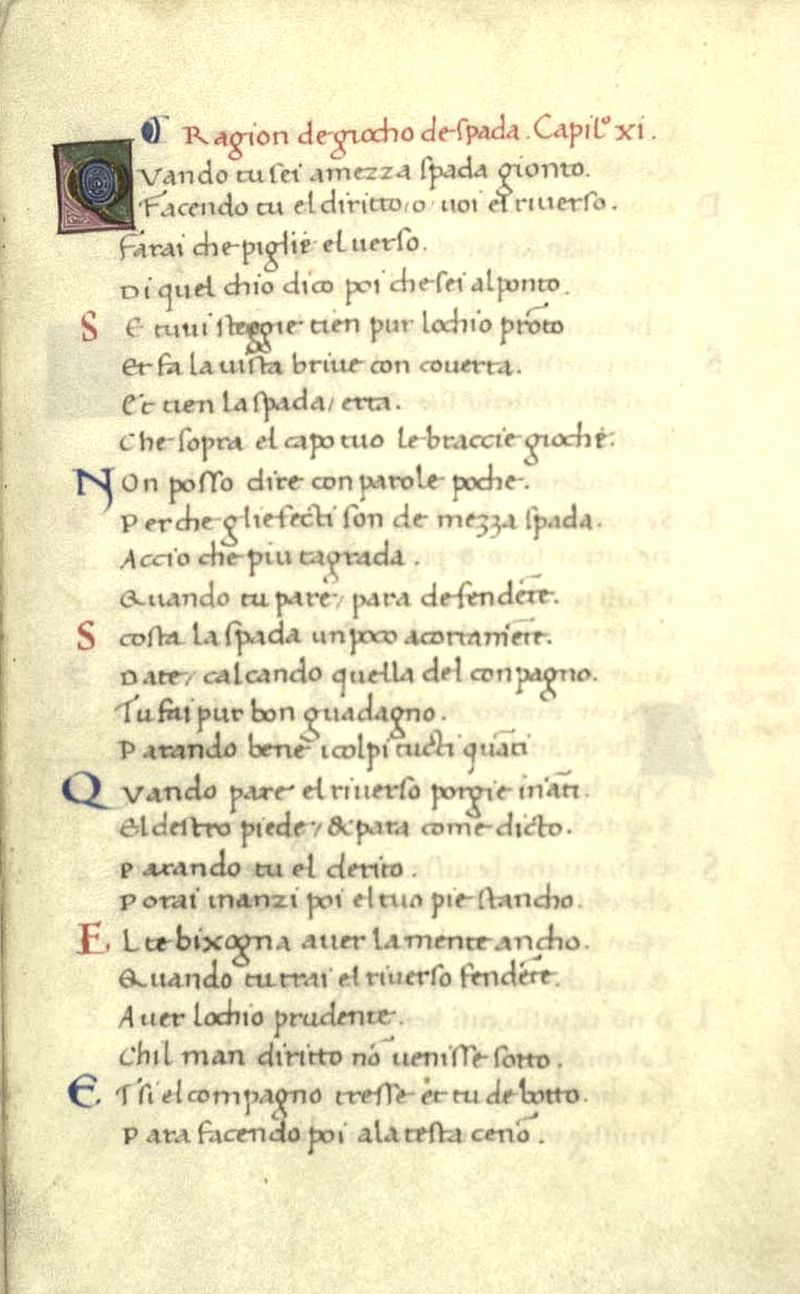 Ragion de giocho de spada. Capil.º xi.
Quando tu sei a mezza spada gionto.
Facendo tu el diritto / o uoi el riuerso.
Farai che piglie el uerso.
Di quel chio dico poi che sei al ponto.
Se tu ui steggie tien pur lochio prōto
Et fa la uista briue con couerta.
Et tien la spada / erta.
Che sopra el capo tuo le braccie gioche.
NOn posso dire con parole poche.
Perche gliefecti son de mezza spada.
Accio che piu tagrada.
Quando tu pare / para de fendēte.
Scosta la spada un poco acortamēte.
Da te / calcando quella del conpagno.
Tu fai pur bon guadagno.
Parando bene icolpi tucti quāti
QVando pare el riuerso porgie inā̄ti.
El destro piede / & para come dicto.
Parando tu el derito.
Porai inanzi poi el tuo pie stancho.
El te bixogna auer la mente ancho.
Quando tu trai el riuerso fendēte.
Auer lochio prudente.
Chil man diritto nō uenisse sotto.
ET si el compagno tresse et tu de botto.
Para facendo poi ala testa cenō.